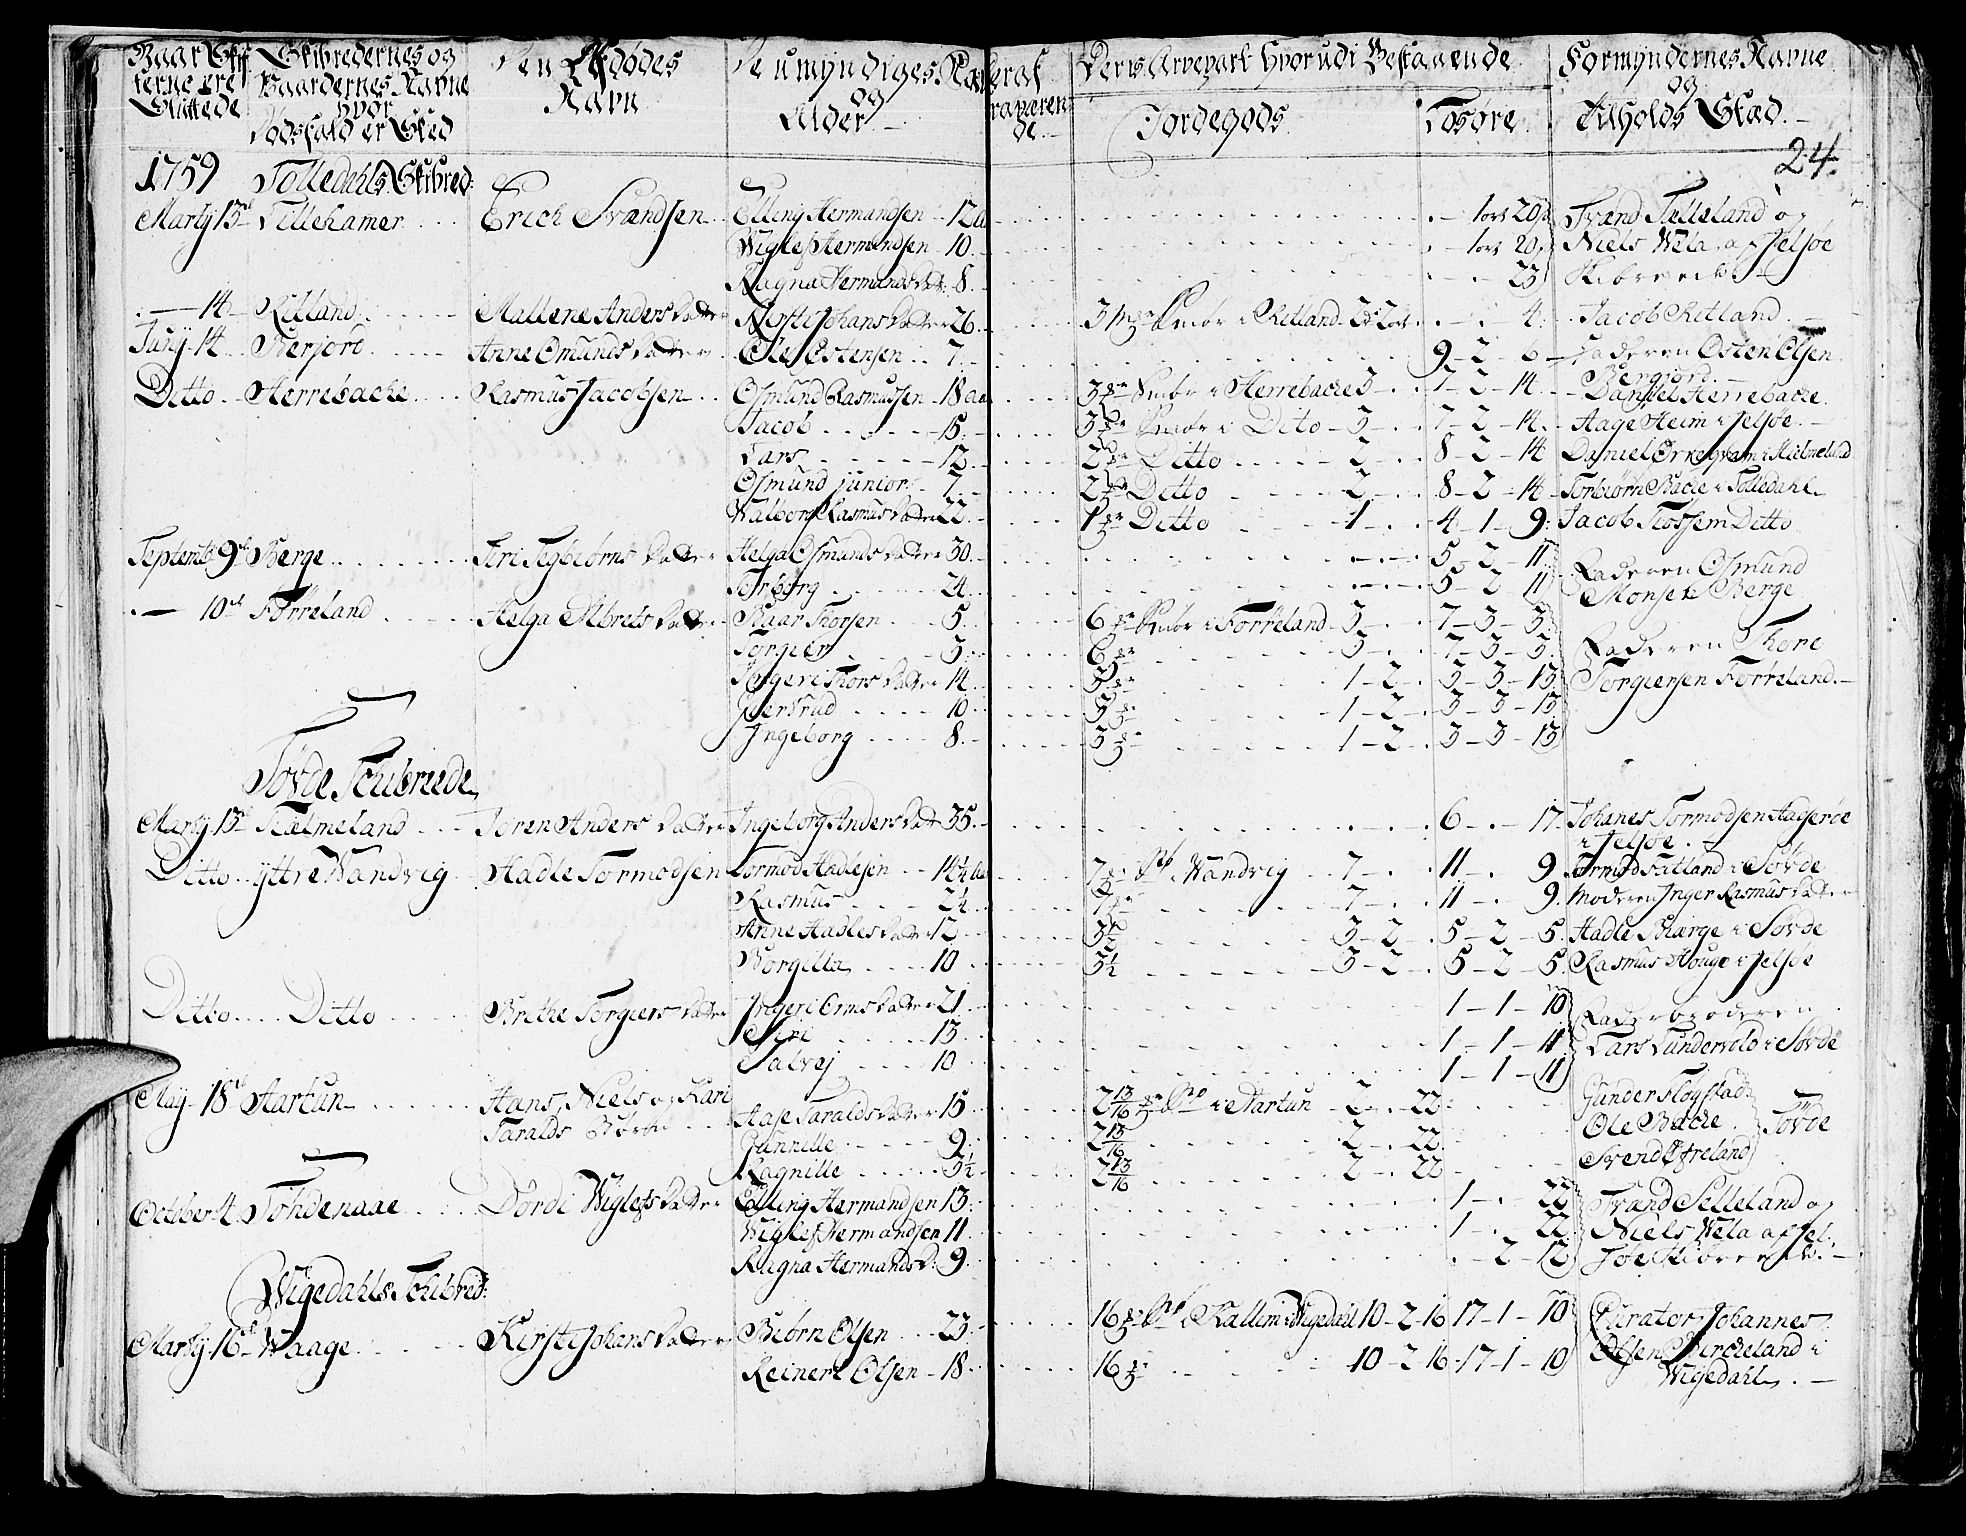 Naar Skif- Skibredernes og Den Afdødes De umyndiges Navne Deraf Deris Arvepart hvorudi Bestaaende Formyndernes Navne
terne ere Gaardernes Navne Navn og og
Sluttede hvor Alder Jordegods Løsøre Tilholds Stæd.
Dødsfald er Skeed
24.
1759 Jolledahls Skibred:
Marty 13 Lillehamer Erich Svendsen Elling Hermandsen 12 1 ort 20 s Svend Selleland og
Wiglef Hermandsen 10 1 ort 20 s Niels Wela af Jelsøe
Ragna Hermands dat: 8 23 Skibrede
14 Ritland Mallene Anders Datter Kirsti Johans Datter 26 3 Smør i Ritland 4 Jacob Ritland
Juny 14 Berfjord Anne Omunds Datter Ole Ostensen 7 9-2-6 Faderen Osten Olsen
Berfjord
Ditto Herrebache Rasmus Jacobsen Osmund Rasmussen 18 3 Smør i Herrebache 3 1-2-14 Daniel Herrebache
Jacob 15 3 Smør i Dito 3 7-2-14 Aage Heim i Jelsøe
Lars 12 2 Ditto 2 8-2-14 Daniel i Hielmeland
Osmund junior 7 2 Ditto 2 8-2-14 Torbiørn Bache i Jolledahl
Walborg Rasmus Datter 22 1 Ditto 1 4-1-9 Jacob Ditto
Septembr 9 Berge Siri Datter Helga Osmunds Datter 30 5-2-11 Faderen Osmund
Torborg 24 5-2-11 Monsen Berge
10 Førreland Helga Albrets Datter Baar Thorsen 5 6 Smør i Førreland 3 7-3-3 Faderen Thore
Torgier 3 6 3 7-3-3 Torgiersen Førreland
Ingeri Thors Datter 14 3 1-2 3-3-13
Giertrud 10 3 1-2 3-3-13
Ingeborg 8 3 1-2 3-3-13
Søvde Schibrede
Marty 13 Hælmeland Søren Anders Datter Ingeborg Anders dat 35 6-17 Johanes Tormodsen Hagerøe
i Jelsøe
Ditto Yttre Wandvig Hadle Tormodsen Tormod Hadlesen 14½ 7 i Wandvig 7 11-9 Tormod Fatland i Søvde
Rasmus 2½ 7 7 11-9 Moderen Inger Rasmus Datter
Anne Hadles Datter 12 3½ 3-2 5-2-5 Hadle Biærge i Søvde
Borgilla 10 3½ 3-2 5-2-5 Rasmus Houge i Jelsøe
Ditto Ditto Brithe Torgiers Datter Ingeri Orms Datter 21 1-1-10 Faderbroderen
Siri 13 1-1-11 Lars Lundervold i Søvde
Salvej 10 1-1-11
May 18 Aartun Hans, Niels og Kari Aase Taralds Datter 15 2 13/16 i Aartun 2-22 Gunder Fløgstad
Taralds Børn Gunnille 9 2 13/16 2-22 Ole Bache Søvde
Ragnille 3½ 2 13/16 2-22 Svend Øfreland
October 4 Søhdenaae Dordi Wiglefs Datter Elling Hermandsen 13 1-22 Svend Selleland og
Wiglef Hermandsen 11 1-22 Niels Wela af Jel-
Ragna Hermands D: 9 2-12 søe
Wigedahls Schibred:
Marty 16 Waage Kirsti Johans Datter Biørn Olsen 23 16 i Kallem i Wigedahl 10-2-16 17-1-10 Curator Johannes
Reinert Olsen 18 16 10-2-16 17-1-10 Olsen Bircheland i
Wigedahl